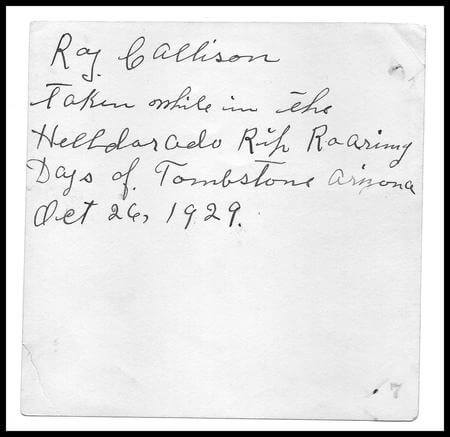 Roy. Callison
Taken while in the
Helldorado Rip Roaring
Days of. Tombstone Arizona
Oct 26, 1929.
7